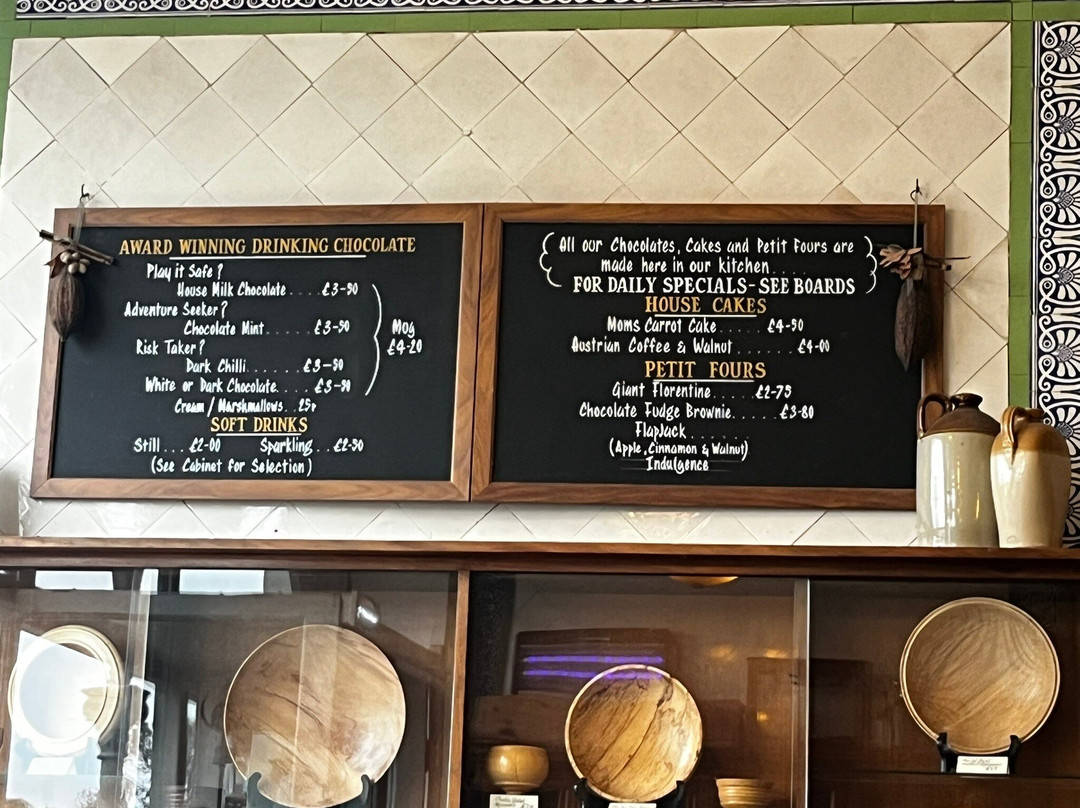 AWARD WINNING DRINKING CHOCOLATE
Play it Safe?
House Milk Chocolate....£3-90
Adventure Seeker?
Chocolate Mint.....£3-90
Risk Taker?
Dark Chilli......£3-90
White or Dark Chocolate....£3-90
Mug
£4-20
Cream / Marshmallows..25p
SOFT DRINKS
Still....£2-00 Sparkling..£2-30
(See Cabinet for Selection)
(All our Chocolates, Cakes and Petit Fours are
made here in our kitchen....
FOR DAILY SPECIALS - SEE BOARDS)
HOUSE CAKES
Moms Carrot Cake......£4-50
Austrian Coffee & Walnut.......£4-00
PETIT FOURS
Giant Florentine......£2-75
Chocolate Fudge Brownie......£3-80
FlapJack.......
(Apple, Cinnamon & Walnut)
Indulgence